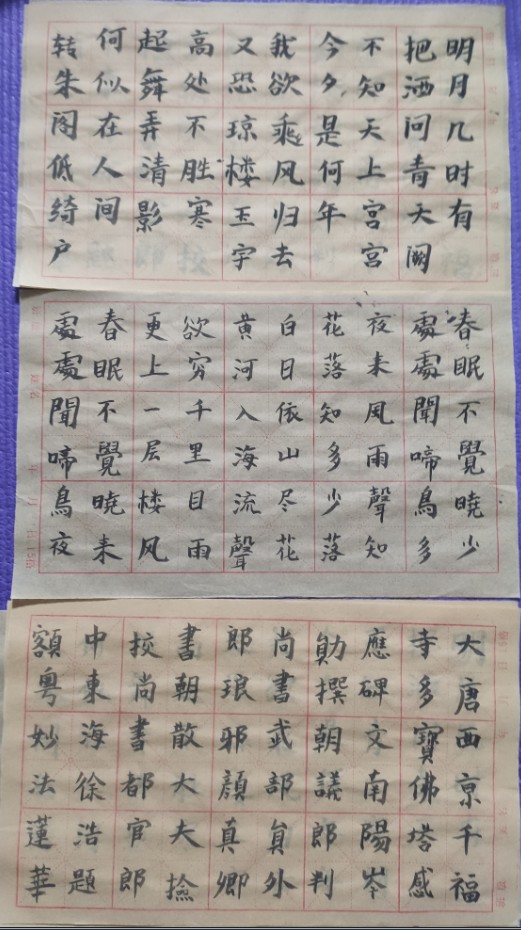 明月几时有
把洒问青天阙
不知天上宫宫
今夕是何年
我欲乘风归去
又恐琼楼玉宇
高处不胜寒
起舞弄清影
何似在人间
转朱阁低绮户
春眠不覺曉少
處處聞啼鳥多
夜来風雨聲知
花落知多少落
白日依山尽花
黄河入海流聲
欲穷千里目雨
更上一层楼风
春眠不覺曉来
處處聞啼鳥夜
大唐西京千福
寺多寶佛塔感
應碑文南陽岑
勛撰朝議郎判
尚書武部員外
郎琅邪顏真卿
書朝散大夫撿
挍尚書都官郎
中東海徐浩題
額粤妙法蓮華